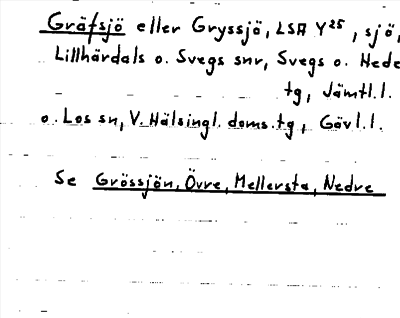 Gräfsjö eller Gryssjö, LSA Y25, sjö,
Lillhärdals o. Svegs snr, Svegs o. Hede
tg, Jämtl.l.
o. Los sn, V. Hälsingl. doms.tg, Gävl.l.
Se Grössjön, Övre, Mellersta, Nedre